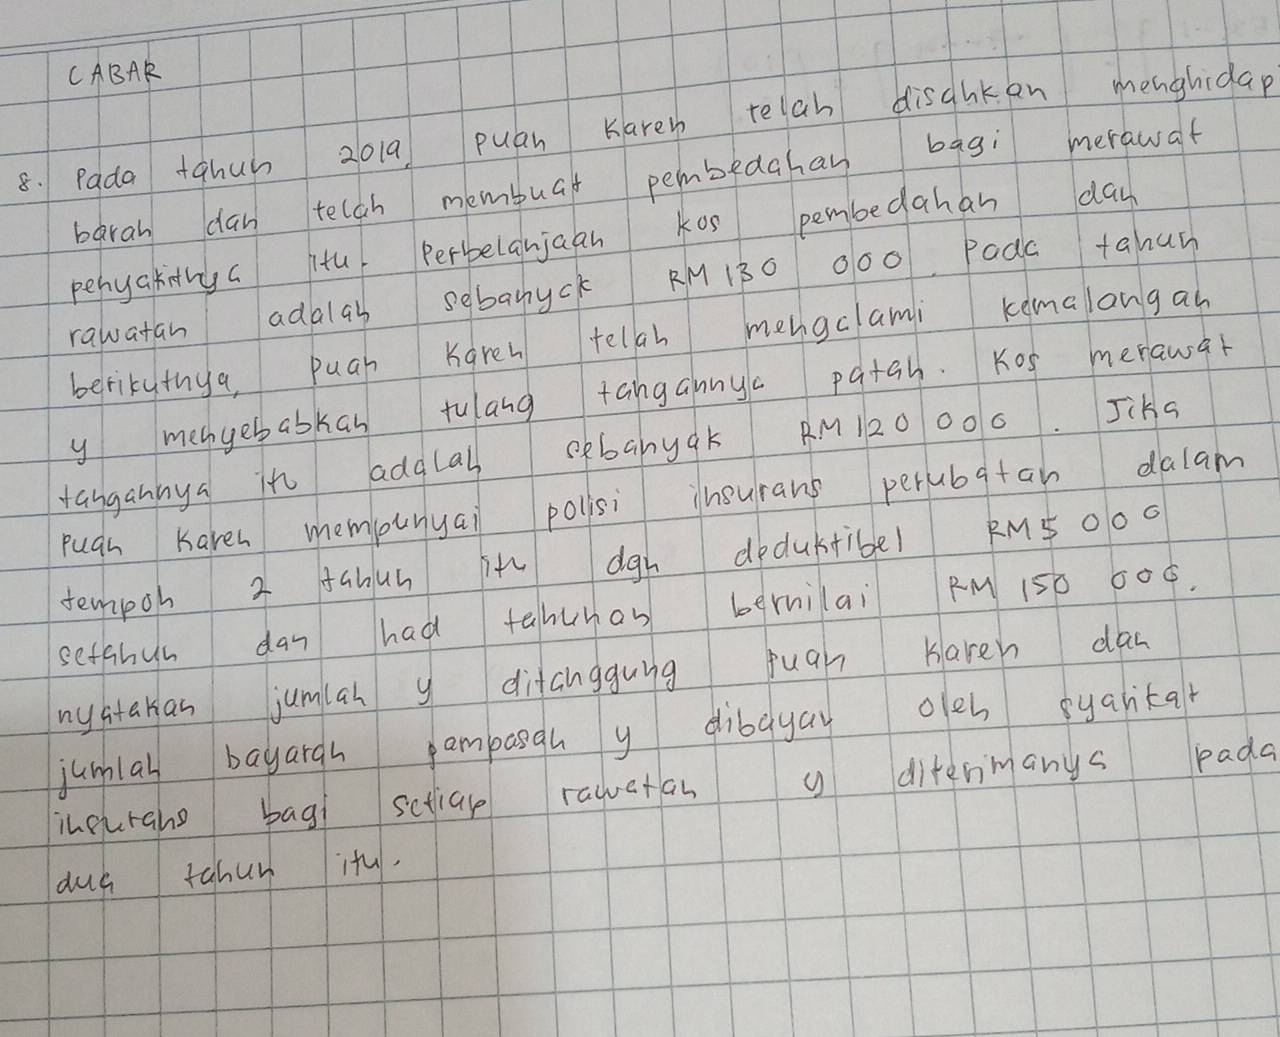 CABAR
8. Pada tahun 2019, Puan Karen telah disahkan menghidap
barah dan telah membuat pembedahan bagi merawat
penyakitnya itu. Perbelanjaan kos pembedahan dan
rawatan adalah sebanyak RM 130 000. Pada tahun
berikutnya, Puan Karen telah mengalami kemalangan
y menyebabkan tulang tangannya patah. Kos merawat
tangannya itu adalah sebanyak RM 120 000. Jika
Puan Karen mempunyai polisi insurans perubatan dalam
tempoh 2 tahun itu dgn deduktibel RM 5 000
setahun dan had tahunan bernilai RM 150 000.
nyatakan jumlah y ditanggung Puan Karen dan
jumlah bayaran pampasan y dibayar oleh syarikat
insurans bagi setiap rawatan y diterimanya pada
dua tahun itu.